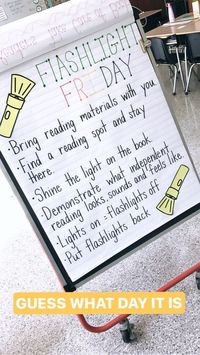 FLASHLIGHT
FRIDAY
· Bring reading materials with you
· Find a reading spot and stay
there.
· Shine the light on the book
· Demonstrate what independent
reading looks, sounds and feels like.
· Lights on = flashlights off
· Put flashlights back
GUESS WHAT DAY IT IS